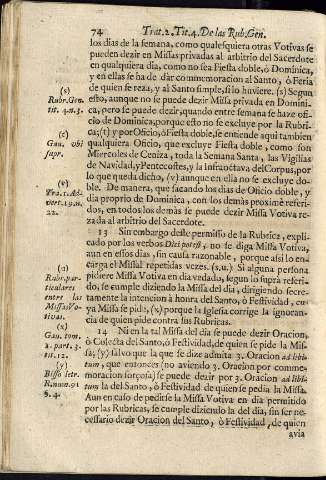 74 Trat.2.Tit.4.De las Rub.Gen.
los dias de la semana, como qualesquiera otras Votivas se
pueden dezir en Missas privadas al arbitrio del Sacerdote
en qualquiera dia, como no sea Fiesta doble, ò Dominica,
y en ellas se ha de dàr commemoracion al Santo, ò Feria
de quien se reza, y al Santo simple, si lo huviere. (s) Segun
esto, aunque no se puede dezir Missa privada en Domini-
ca, pero se puede dezir, quando entre semana se haze ofi-
cio de Dominica; porque esto no se excluye por la Rubri-
ca; (t) y por Oficio, ò Fiesta doble, se entiende aqui tambien
qualquiera Oficio, que excluye Fiesta doble, como son
Miercoles de Ceniza, toda la Semana Santa, las Vigilias
de Navidad, y Pentecostes, y la infraoctava del Corpus, por
lo que queda dicho, (v) aunque en ella no se excluye do-
ble. De manera, que sacando los dias de Oficio doble, y
dia proprio de Dominica, con los demàs proxime referi-
dos, en todos los demàs se puede dezir Missa Votiva re-
zada al arbitrio del Sacerdote.
13 Sin embargo deste permisso de la Rubrica, expli-
cado por los verbos Dici potest, no se diga Missa Votiva,
aun en essos dias, sin causa razonable, porque assi lo en-
carga el Missal repetidas vezes. (s.u.) Si alguna persona
pidiere Missa Votiva en dia vedado, segun lo suprà referi-
do, se cumple diziendo la Missa del dia, dirigiendo secre-
tamente la intencion à honra del Santo, ò Festividad, cu-
ya Missa se pide, (x) porque la Iglesia corrige la ignoran-
cia de quien pide contra sus Rubricas.
14 Ni en la tal Missa del dia se puede dezir Oracion,
ò Colecta del Santo, ò Festividad, de quien se pide la Mis-
sa; (y) salvo que la que se dize admita 3. Oracion ad libi-
tum, que entonces (no aviendo 3. Oracion por comme-
moracion forçosa) se puede dezir por 3. Oracion ad libi-
tum la del Santo, ò Festividad de quien se pedia la Missa.
Aun en caso de pedirse la Missa Votiva en dia permitido
por las Rubricas, se cumple diziendo la del dia, sin ser ne-
cessario dezir Oracion del Santo, ò Festividad, de quien
avia
(s)
Rubr.Gen.
tit. 4.n.3.
(t)
Gav. ubi
supr.
(v)
Tra.1. Ad-
vert.19.n.
22.
Rubr.par-
ticulares
entre las
Missas Vo-
tivas.
(x)
Gav. tom.
1. part. 3.
tit. 12.
(y)
Bisso letr.
R.num.91
§. 4.